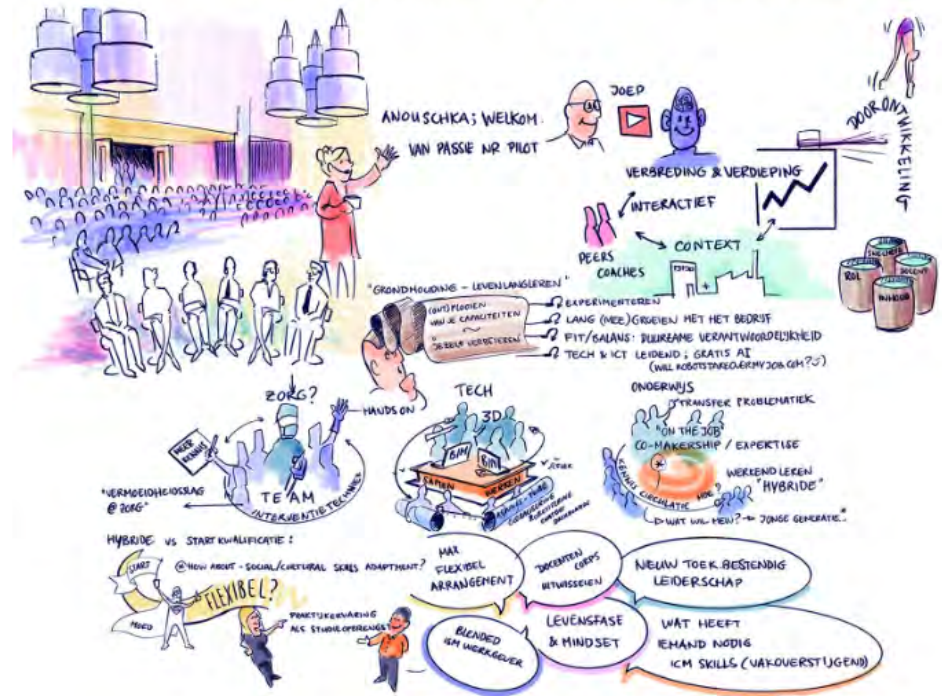 ANOUSCHKA; WELKOM.
VAN PASSIE NR PILOT
JOEP
DOORONTWIKKELING
VERBREDING & VERDIEPING
INTERACTIEF
PEERS
COACHES
CONTEXT
SNELHEID
ROL
DOCENT
INHOUD
"GRONDHOUDING - LEVENLANGLEREN"
(ONT)PLOOIEN
VAN JE CAPACITEITEN
~
JEZELF VERDIENEN
EXPERIMENTEREN
LANG (MEE)GROEIEN MET HET BEDRIJF
FIT/BALANS: DUURZAME VERANTWOORDELIJKHEID
TECH & ICT LEIDEND; GRATIS AI
(WILL ROBOTSTAKEOVERMYJOB.COM?
ZORG?
HANDS ON
MEER
KENNIS
"VERMOEIDHEIDSSLAG
@ ZORG"
TEAM
INTERVENTIETECHNIEK
TECH
3D
BIM
BIM
SAMEN WERKEN
ONDERWIJS
TRANSFER PROBLEMATIEK
"ON THE JOB"
CO-MAKERSHIP / EXPERTISE
KENNIS CIRCULATIE HOE?
WERKEND LEREN
"HYBRIDE"
WAT WIL MEN? JONGE GENERATIE
HYBRIDE VS STARTKWALIFICATIE:
HOW ABOUT - SOCIAL/CULTURAL SKILLS ADAPTMENT?
START
MOED
FLEXIBEL?
PRAKTIJKERVARING
ALS STUDIEOPBRENGST
MAX
FLEXIBEL
ARRANGEMENT
DOCENTEN
CORPS
UITWISSELEN
NIEUW TOEK.BESTENDIG
LEIDERSCHAP
BLENDED
ISM WERKGEVER
LEVENSFASE
& MINDSET
WAT HEEFT
IEMAND NODIG
ICM SKILLS (VAKOVERSTIJGEND)